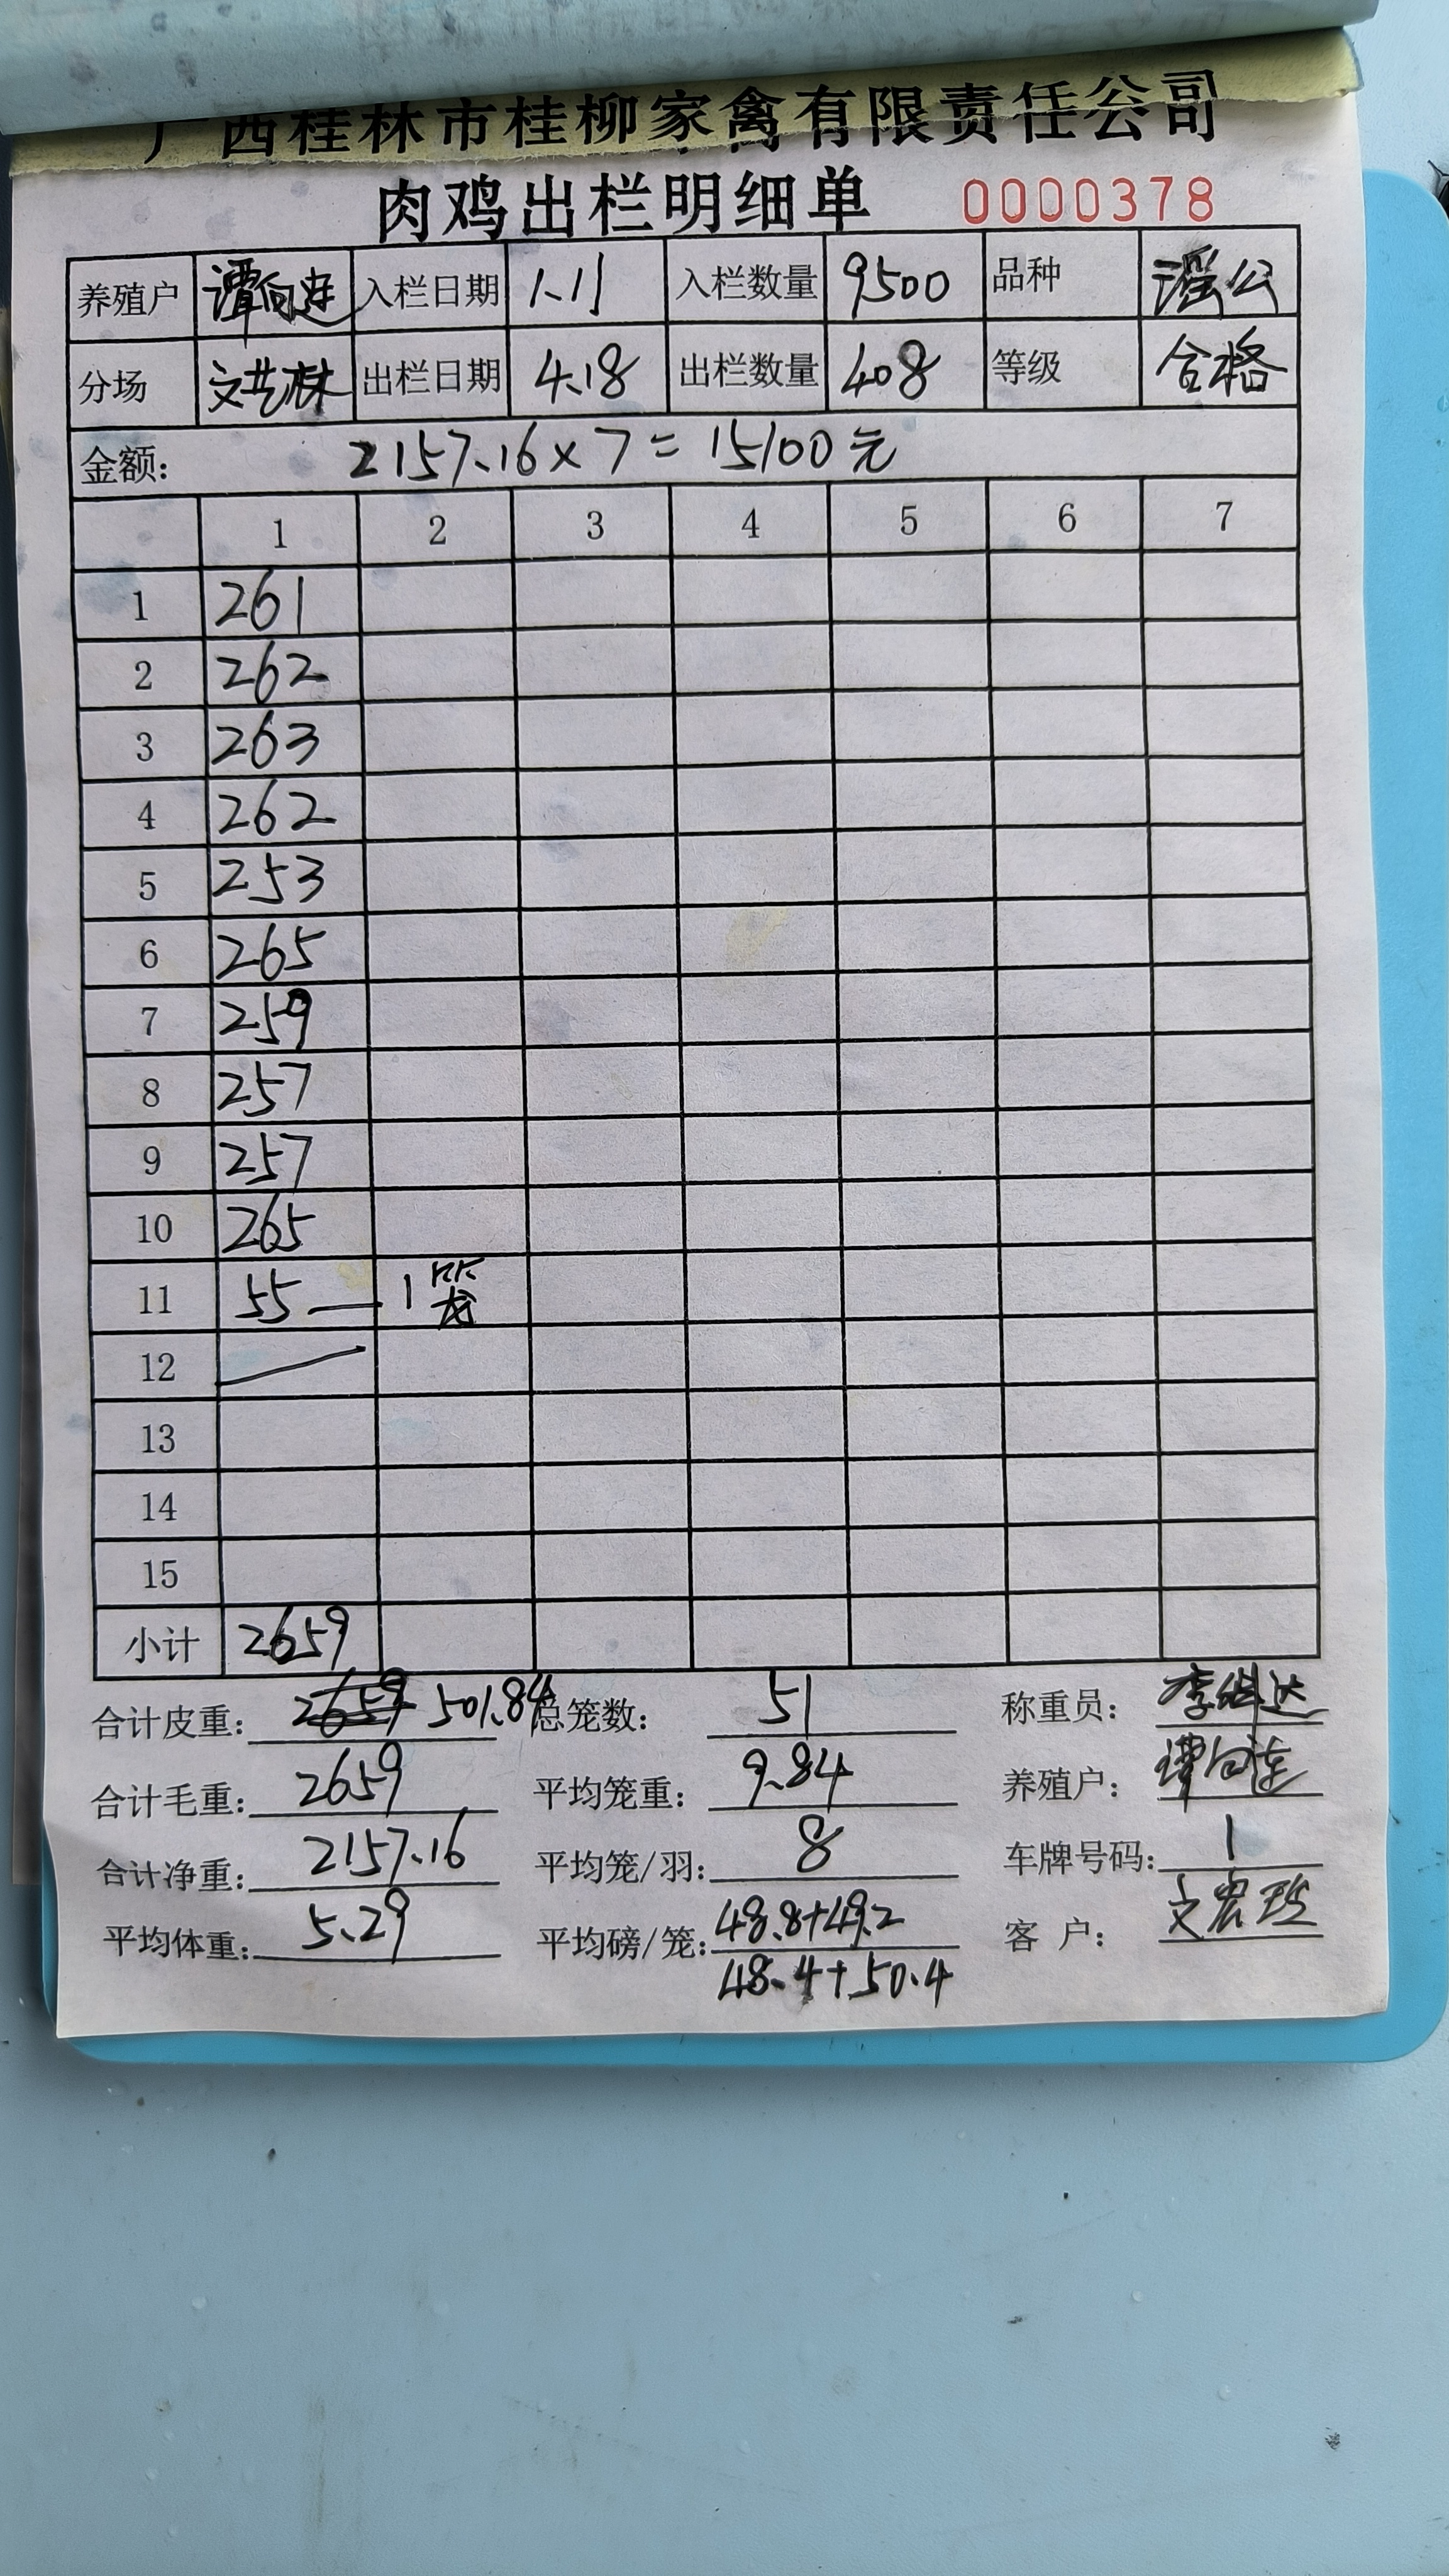 广西桂林市桂柳家禽有限责任公司
肉鸡出栏明细单 0000378
养殖户 谭向连 入栏日期 1.11 入栏数量 9500 品种 瑶公
分场 文艺林 出栏日期 4.18 出栏数量 408 等级 合格
金额: 2157.16×7=15100元
1 2 3 4 5 6 7
1 261
2 262
3 263
4 262
5 253
6 265
7 259
8 257
9 257
10 265
11 55 — 1笼
12
13
14
15
小计 2659
合计皮重: 2659 501.84 总笼数: 51 称重员:
合计毛重: 2659 平均笼重: 9.84 养殖户: 谭向连
合计净重: 2157.16 平均笼/羽: 8 车牌号码: 1
平均体重: 5.29 平均磅/笼: 48.8+49.2 客户:
48.4+50.4